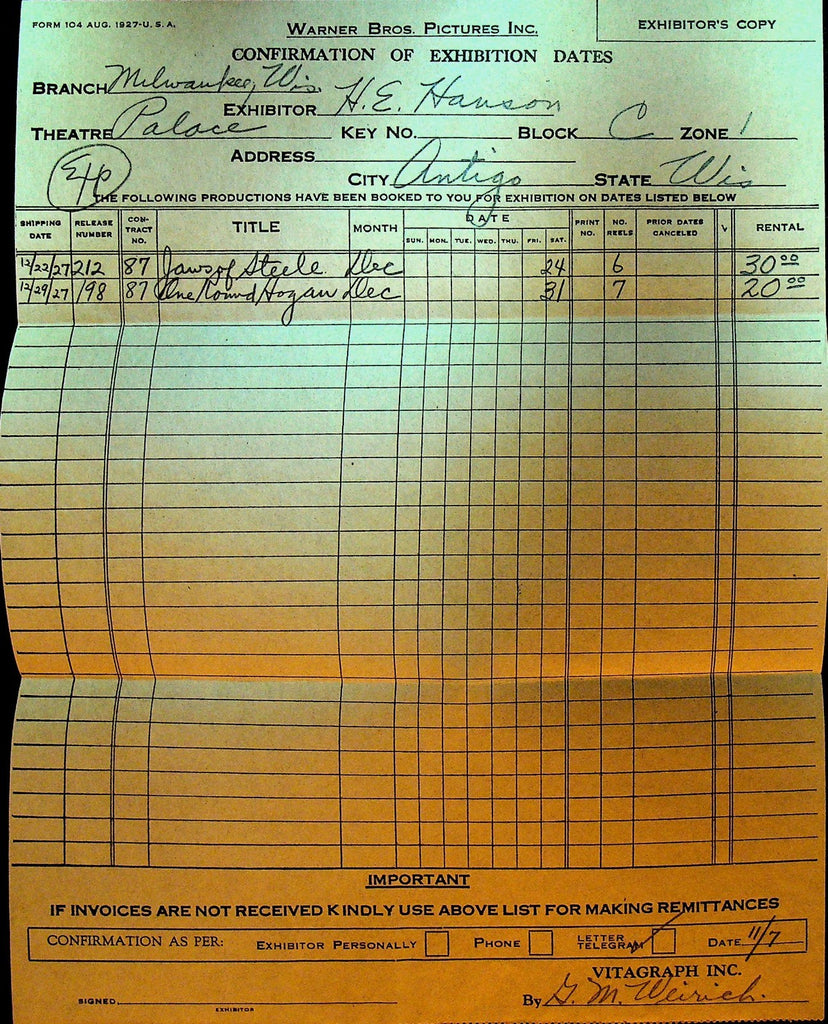 FORM 104 AUG. 1927-U.S.A.
WARNER BROS. PICTURES INC.
EXHIBITOR'S COPY
CONFIRMATION OF EXHIBITION DATES
BRANCH Milwaukee, Wis.
EXHIBITOR H. E. Hanson
THEATRE Palace KEY NO. BLOCK C ZONE 1
ADDRESS
CITY Antigo STATE Wis
THE FOLLOWING PRODUCTIONS HAVE BEEN BOOKED TO YOU FOR EXHIBITION ON DATES LISTED BELOW
SHIPPING DATE RELEASE NUMBER CON-TRACT NO. TITLE MONTH DATE PRINT NO. NO. REELS PRIOR DATES CANCELED √ RENTAL
SUN. MON. TUE. WED. THU. FRI. SAT.
12/22/27 212 87 Jaws of Steele Dec 24 6 30 00
12/29/27 198 87 One Round Hogan Dec 31 7 20 00
IMPORTANT
IF INVOICES ARE NOT RECEIVED KINDLY USE ABOVE LIST FOR MAKING REMITTANCES
CONFIRMATION AS PER: EXHIBITOR PERSONALLY PHONE LETTER TELEGRAM DATE 11/7
VITAGRAPH INC.
SIGNED By G. M. Weirich.
EXHIBITOR